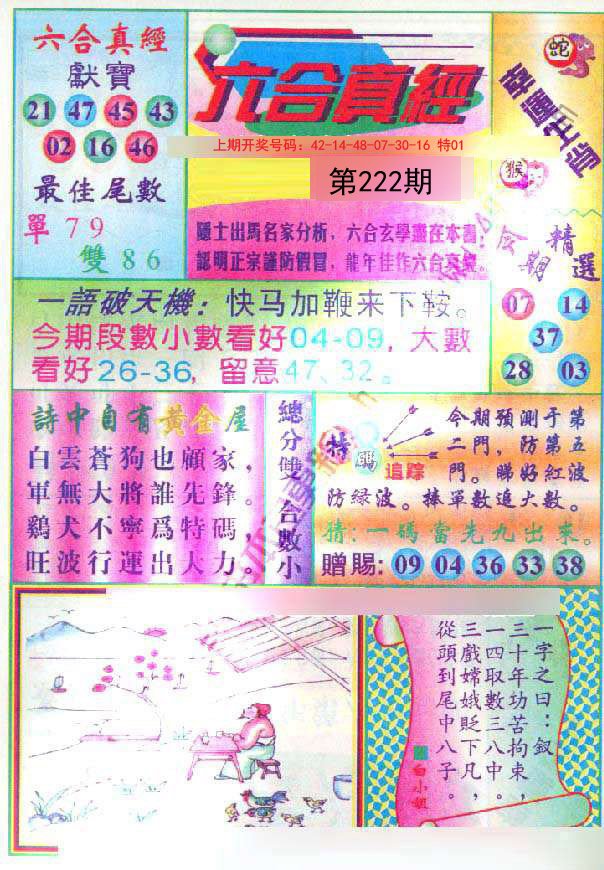 六合真經
獻寶
21 47 45 43
02 16 46
最佳尾數
單 7 9
雙 8 6
六合真經
上期开奖号码：42-14-48-07-30-16 特01
第222期
隱士出馬名家分析，六合玄學盡在本書；
認明正宗謹防假冒，龍年佳作六合真經。
蛇
猴
今期
精選
07 14
37
28 03
一語破天機：快马加鞭来下鞍。
今期段數小數看好04-09，大數
看好26-36，留意47、32。
詩中自有黃金屋
白雲蒼狗也顧家，
軍無大將誰先鋒。
鷄犬不寧爲特碼，
旺波行運出大力。
總分雙 合數小
特碼
追踪
今期預測于第
二門，防第五
門。睇好紅波
防绿波。捧單數追大數。
猜：一碼當先九出來。
贈賜：09 04 36 33 38
一字之曰：釵
三十年功苦拘束，
一四取數三八中。
三戲嫦娥貶下凡，
從頭到尾中八子。
白小姐